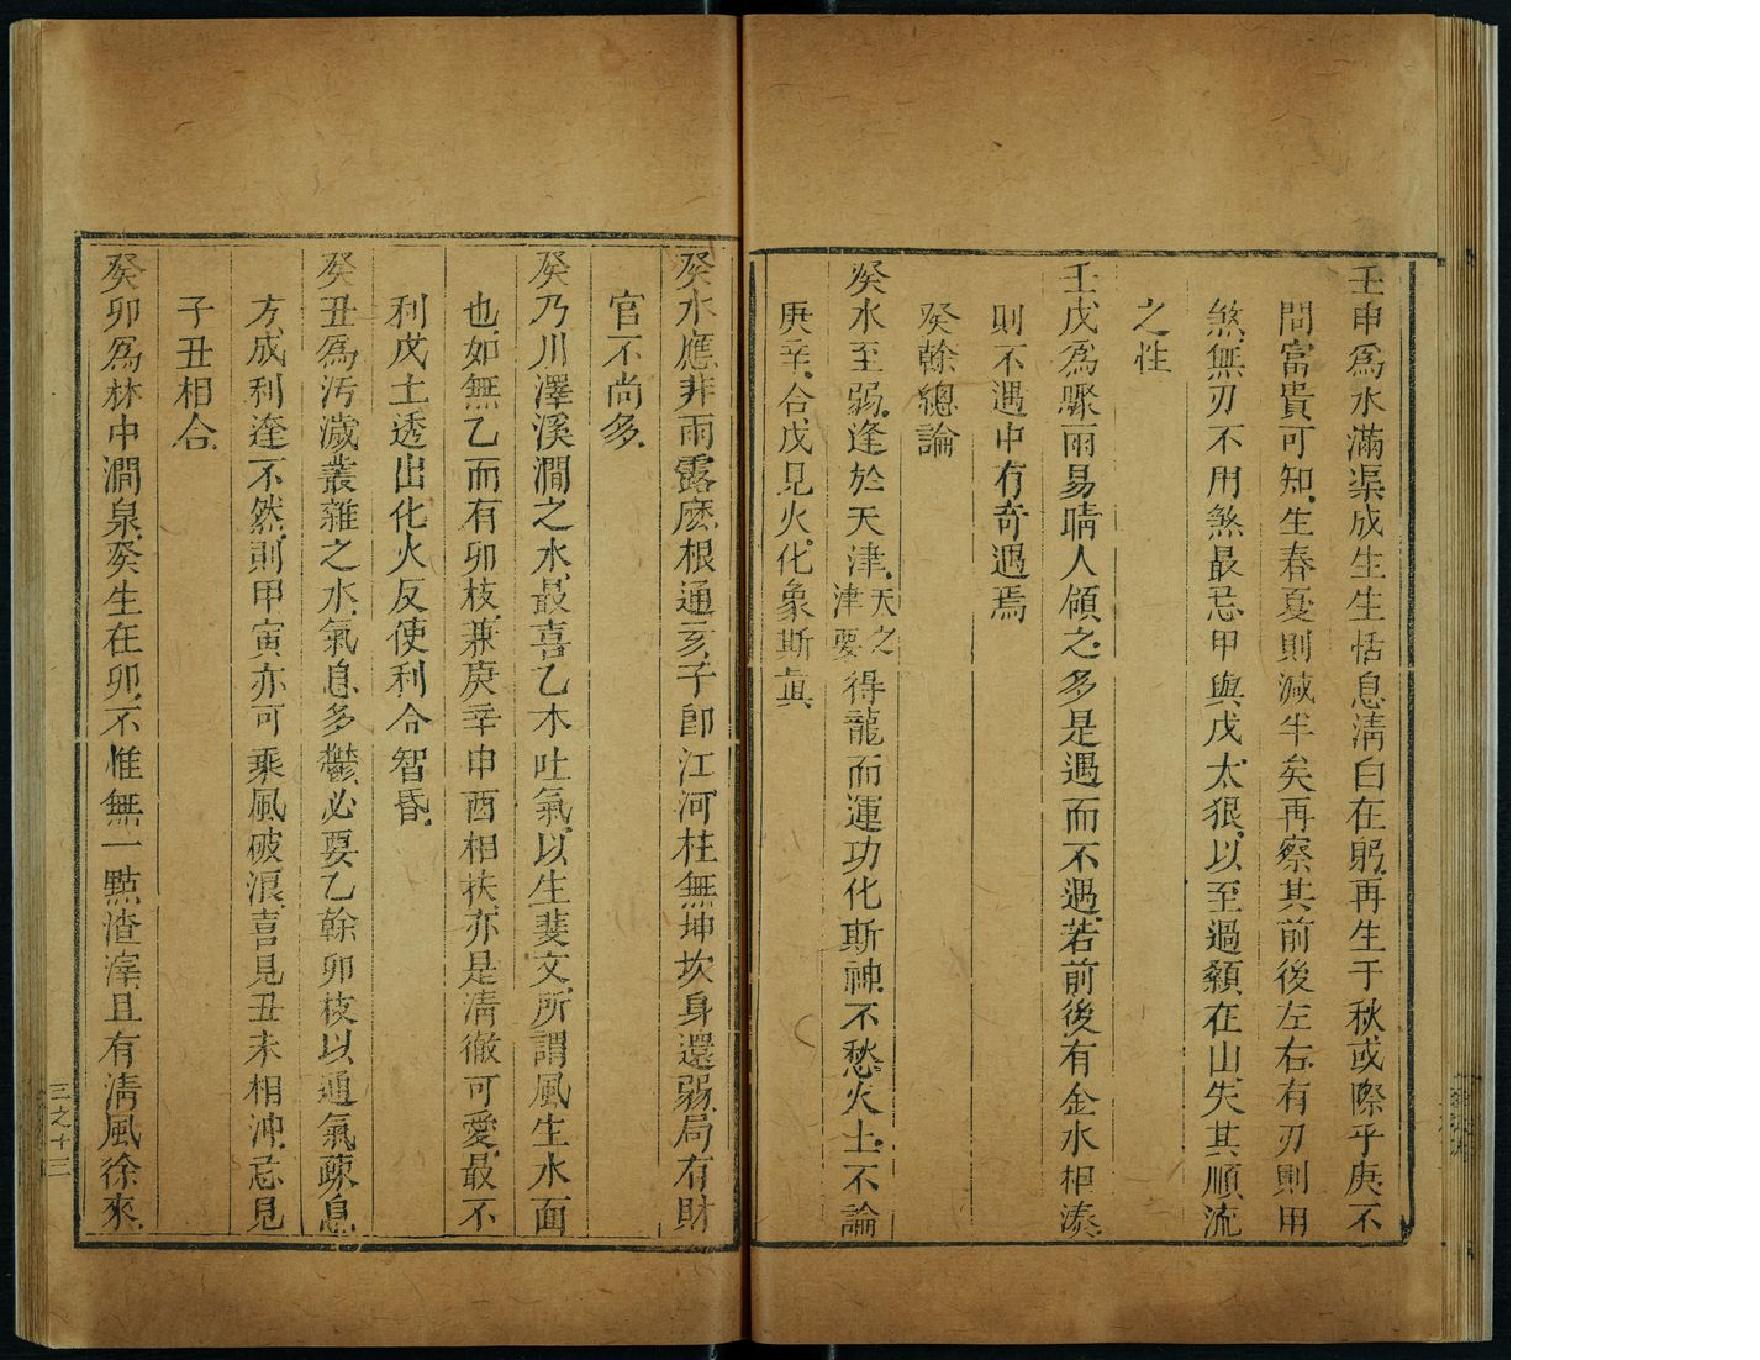 壬申爲水滿渠成生生恬息淸白在躬再生于秋或際乎庚不
問富貴可知生春夏則減半矣再察其前後左右有刃則用
煞無刃不用煞最忌甲與戊太狠以至過顙在山失其順流
之性
壬戌爲驟雨易晴人傾之多是遇而不遇若前後有金水相湊
則不遇中有奇遇焉
癸榦總論
癸水至弱逢於天津天之津要得龍而運功化斯神不愁火土不論
庚辛合戊見火化象斯眞
癸水應非雨露麽根通亥子卽江河柱無坤坎身還弱局有財
官不尚多
癸乃川澤溪澗之水最喜乙木吐氣以生斐文所謂風生水面
也如無乙而有卯枝兼庚辛申酉相扶亦是淸徹可愛最不
利戊土透出化火反使利合智昏
癸丑爲汚濊叢雜之水氣息多鬱必要乙榦卯枝以通氣疎息
方成利達不然則甲寅亦可乘風破浪喜見丑未相沖忌見
子丑相合
癸卯爲林中澗泉癸生在卯不惟無一點渣滓且有淸風徐來
三之十三